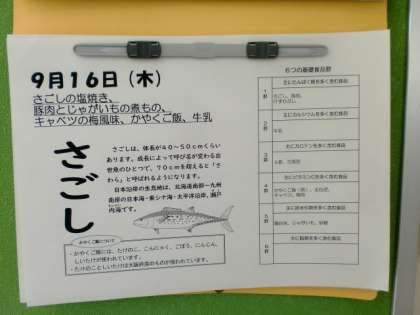 9月16日（木）
さごしの塩焼き、
豚肉とじゃがいもの煮もの、
キャベツの梅風味、かやくご飯、牛乳
さごし
さごしは、体長が40～50cmくらい
あります。成長によって呼び名が変わる出
世魚のひとつで、70cmを超えると「さ
わら」と呼ばれるようになります。
日本沿岸の生息地は、北海道南部～九州
南岸の日本海・東シナ海・太平洋沿岸、瀬戸
内海です。
かやくご飯について
・かやくご飯には、たけのこ、こんにゃく、ごぼう、にんじん、
しいたけが使われています。
・たけのことしいたけは大阪府産のものが使われています。
6つの基礎食品群
1群
主にたんぱく質を多く含む食品
2群
主にカルシウムを多く含む食品
牛乳
3群
主にカロテンを多く含む食品
4群
主にビタミンCを多く含む食品
5群
主に炭水化物を多く含む食品
6群
主に脂肪を多く含む食品